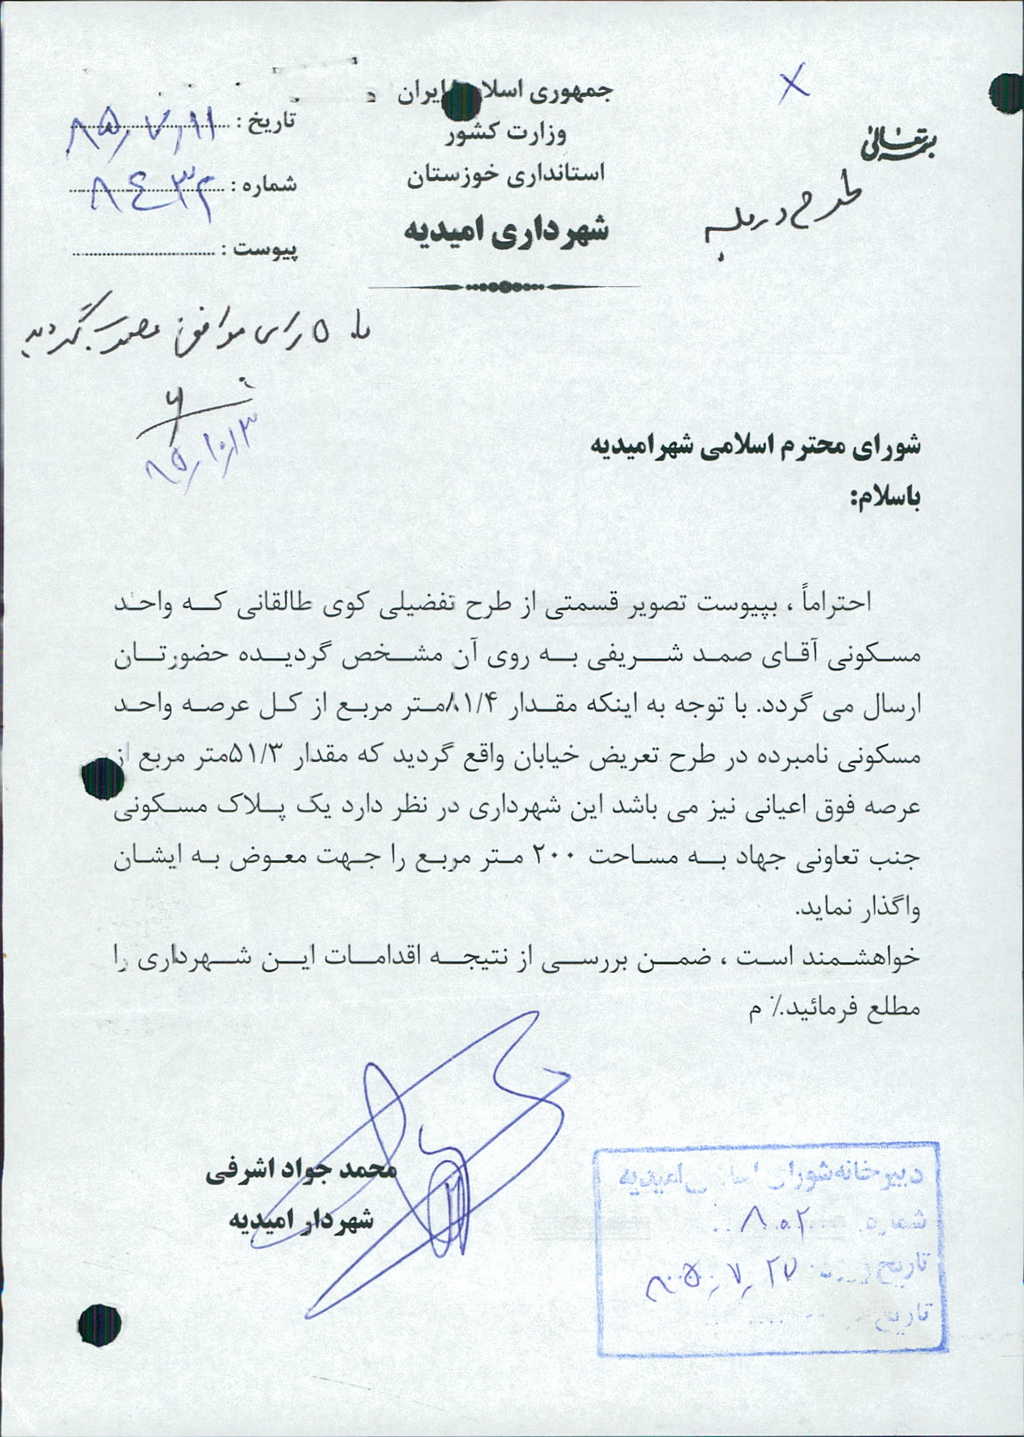 بسمه تعالی
جمهوری اسلامی ایران
وزارت کشور
استانداری خوزستان
شهرداری امیدیه
تاریخ : ۸۵/۷/۱۱
شماره : ۸۴۳۲
پیوست :
طرح در جلسه
با ۵ رای موافق مصوب گردید
۸۵/۱۰/۱۳
شورای محترم اسلامی شهرامیدیه
باسلام:
احتراماً ، بپیوست تصویر قسمتی از طرح تفضیلی کوی طالقانی که واحد
مسکونی آقای صمد شریفی به روی آن مشخص گردیده حضورتان
ارسال می گردد. با توجه به اینکه مقدار ۸۱/۴متر مربع از کل عرصه واحد
مسکونی نامبرده در طرح تعریض خیابان واقع گردید که مقدار ۵۱/۳متر مربع از
عرصه فوق اعیانی نیز می باشد این شهرداری در نظر دارد یک پلاک مسکونی
جنب تعاونی جهاد به مساحت ۲۰۰ متر مربع را جهت معوض به ایشان
واگذار نماید.
خواهشمند است ، ضمن بررسی از نتیجه اقدامات این شهرداری را
مطلع فرمائید.٪ م
محمد جواد اشرفی
شهردار امیدیه
دبیرخانه شورای اسلامی امیدیه
شماره ۸۰۲
تاریخ ۸۵.۷.۲۷
تاریخ